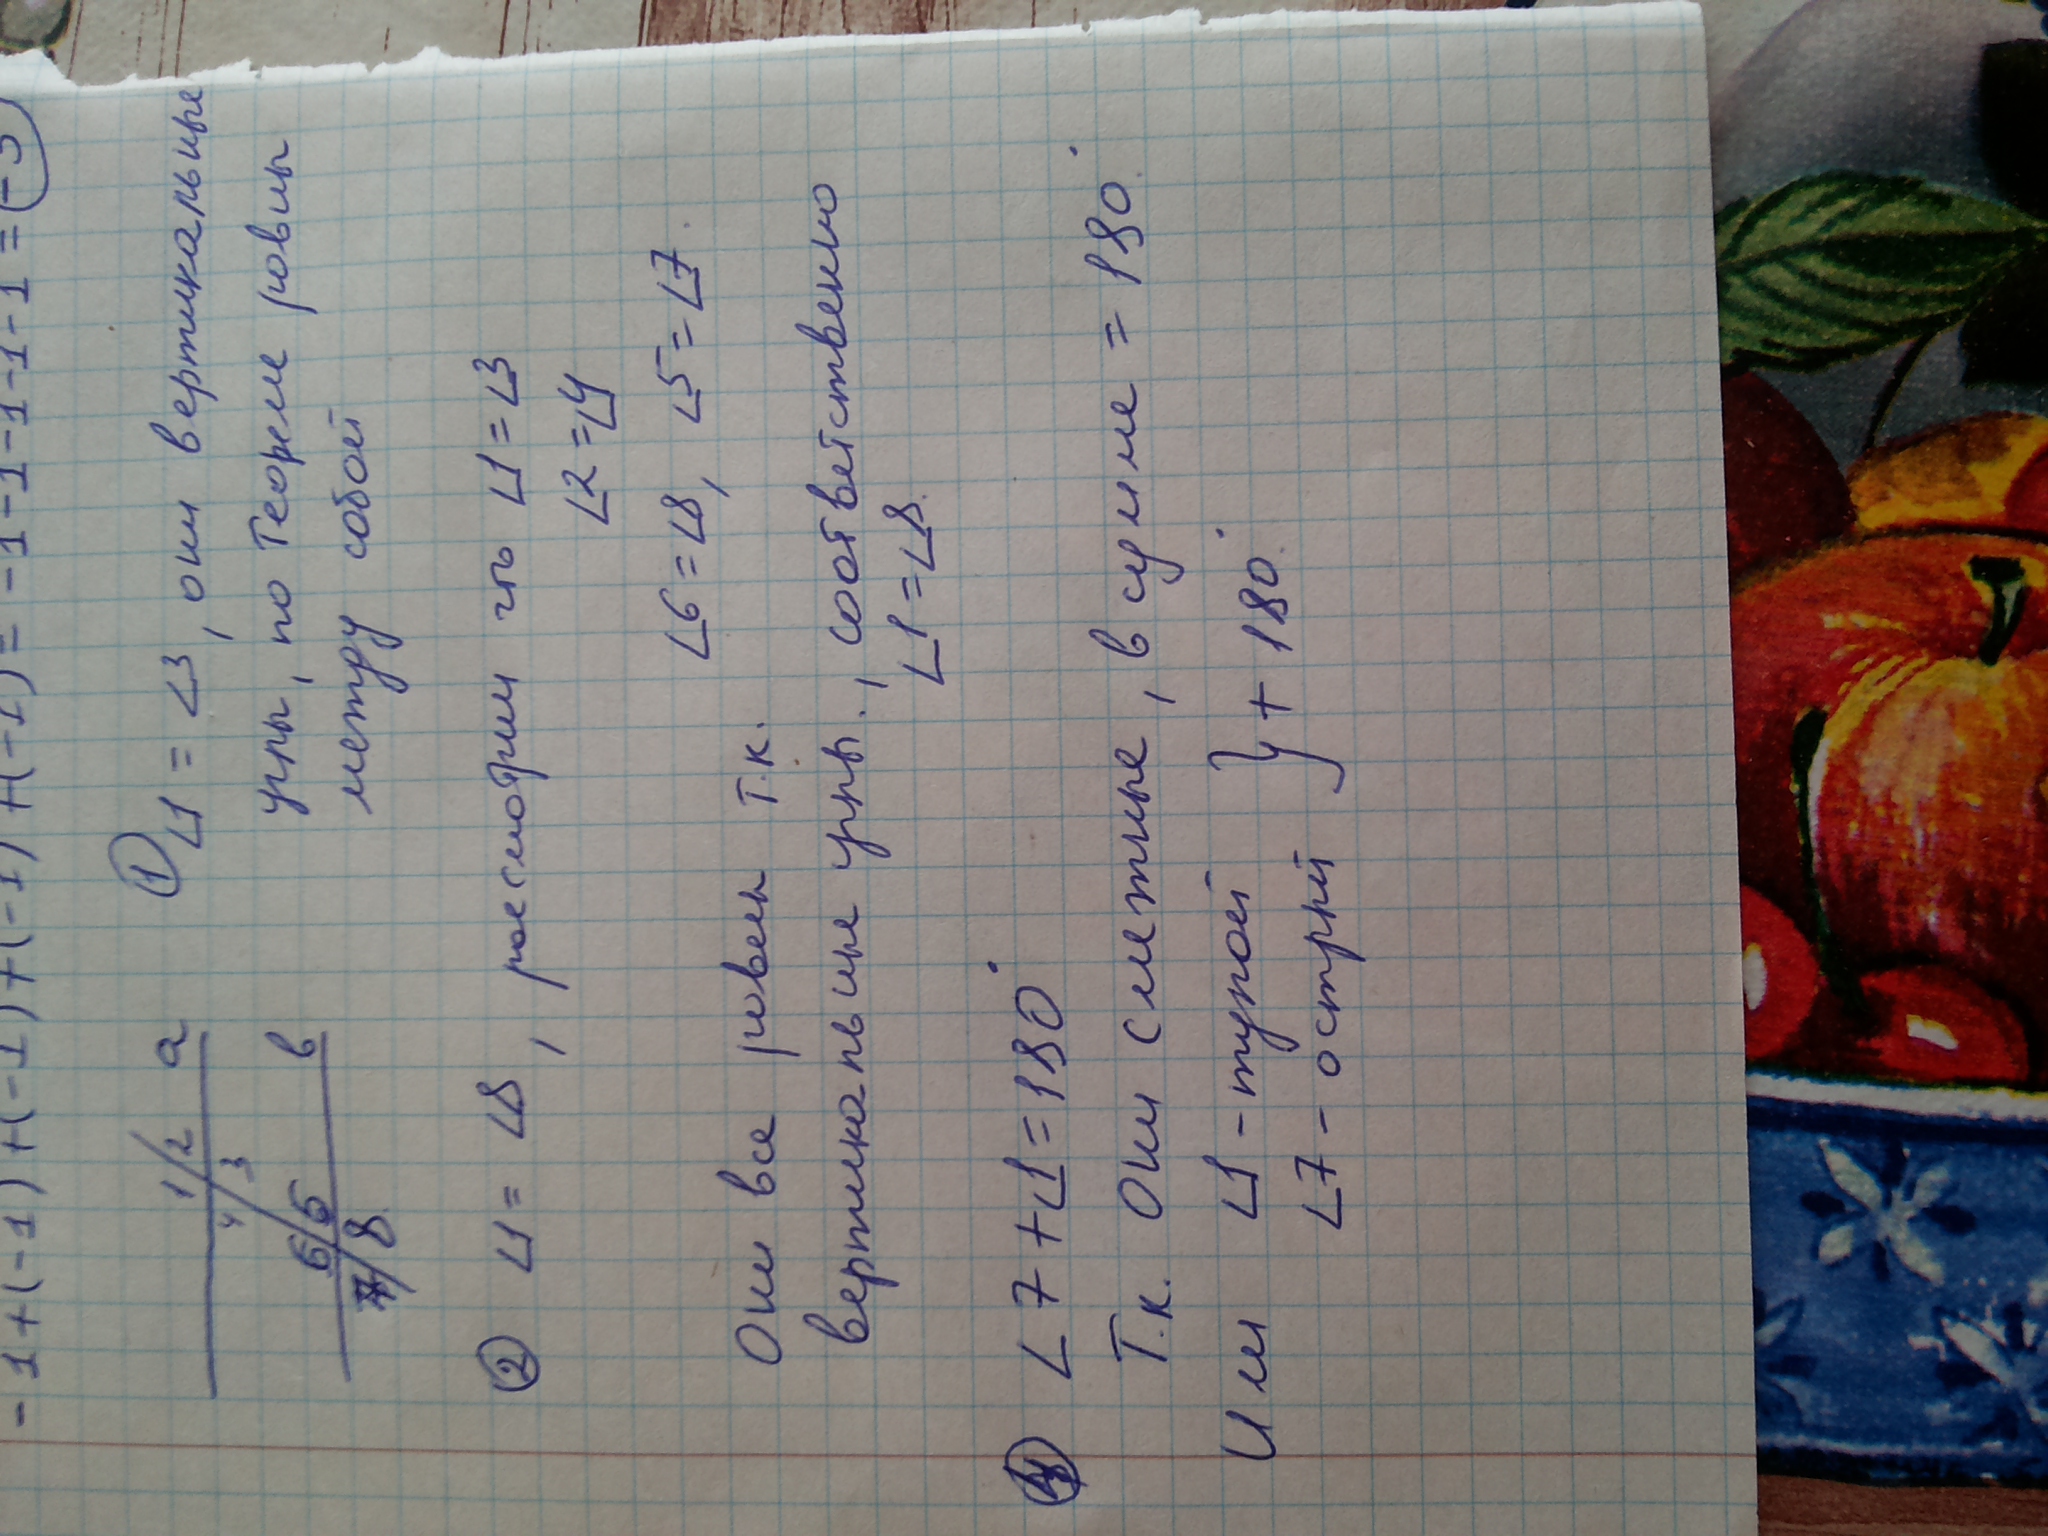 -1+(-1)+(-1)+(-1)+(-1)+(-1)=-1-1-1-1-1=-3
1 2 a
4 3
6 5 в
7 8
① ∠1 = ∠3, они вертикальные
углы, по Теореме ровны
метру собой
② ∠1 = ∠8, россмотрим что ∠1=∠3
∠2=∠4
∠6=∠8, ∠5=∠7.
Они все ровны т.к.
вертикальные углы., соответственно
∠1=∠8.
④ ∠7+∠1=180°
Т.к. Они смежные, в сумме =180°.
Или ∠1-тупой } + 180°.
∠7-острый